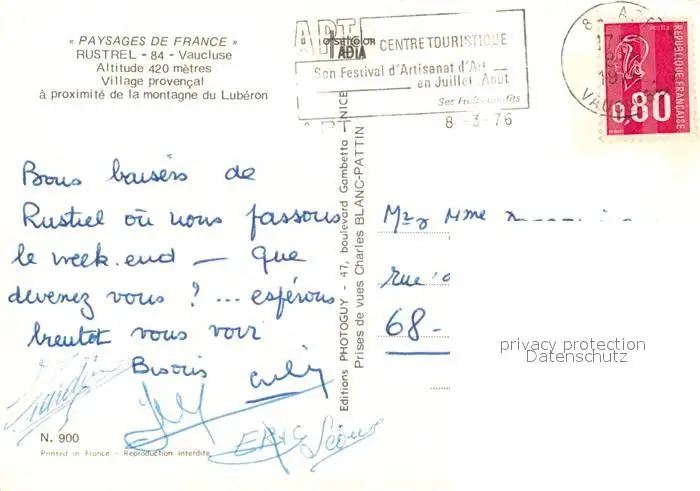 « PAYSAGES DE FRANCE »
RUSTREL - 84 - Vaucluse
Altitude 420 mètres
Village provençal
à proximité de la montagne du Lubéron
APT
CENTRE TOURISTIQUE
Son Festival d'Artisanat d'Art
en Juillet Août
Ses Fruits confits
8-3-76
84 APT
VAUCLUSE
REPUBLIQUE FRANÇAISE
0,80
Bons baisers de
Rustrel où nous passons
le week.end — Que
devenez vous ? ... espérons
bientôt vous voir
Bisous
ERIC
N. 900
Printed in France - Reproduction interdite
Editions PHOTOGUY - 47, boulevard Gambetta NICE
Prises de vues Charles BLANC-PATTIN
Mme
rue
68-
privacy protection
Datenschutz